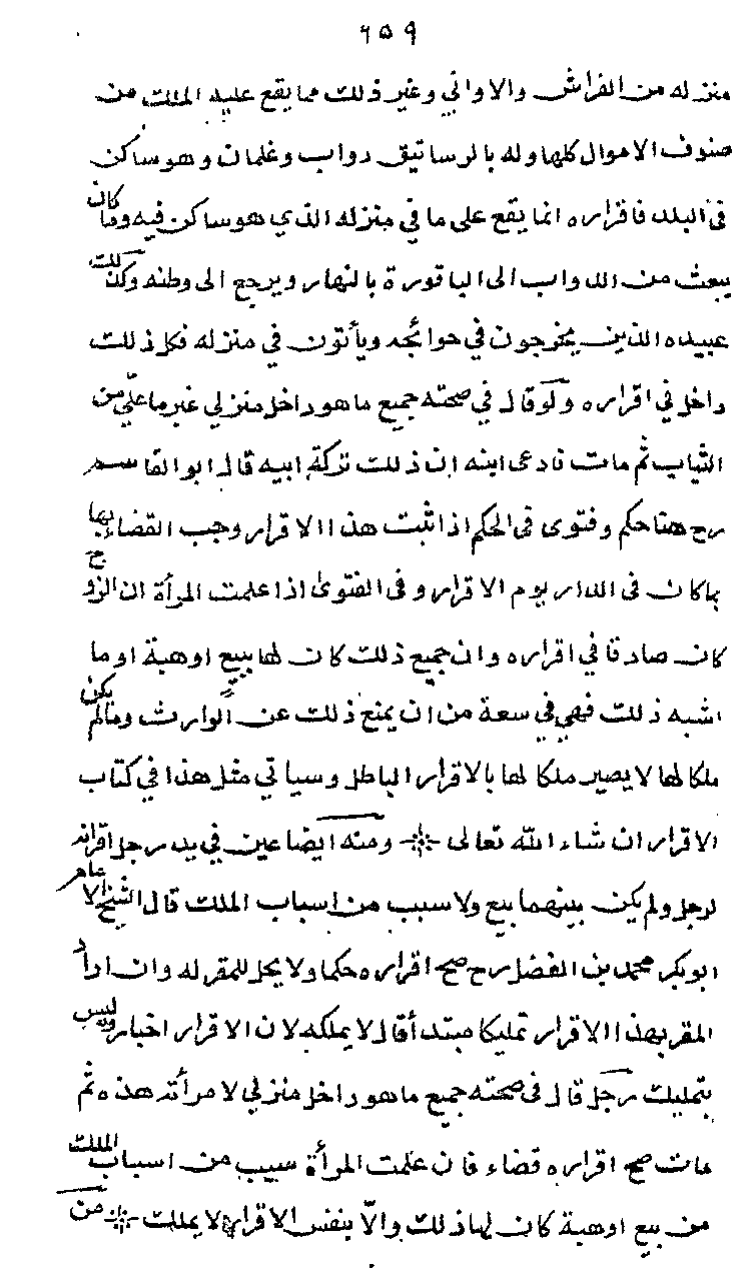 ٦٥٩
منزله من الفراش والاواني وغير ذلك مما يقع عليه الملك من
صنوف الاموال كلها وله بالرساتيق دواب وغلمان وهو ساكن
في البلد فاقراره انما يقع على ما في منزله الذي هو ساكن فيه وما كان
يبعث من الدواب الى الباقورة بالنهار ويرجع الى وطنه وكذلك
عبيده الذين يخرجون في حوائجه ويأتون في منزله فكل ذلك
داخل في اقراره ولو قال في صحته جميع ما هو داخل منزلي غير ما علي من
الثياب ثم مات فادعى ابنه ان ذلك تركة ابيه قال ابو القاسم
رح هنا حكم وفتوى في الحكم اذا ثبت هذا الاقرار وجب القضاء بها
بما كان في الدار يوم الاقرار وفي الفتوى اذا علمت المرأة ان الزوج
كان صادقا في اقراره وان جميع ذلك كان لها ببيع او هبة او ما
اشبه ذلك فهي في سعة من ان يمنع ذلك عن الوارث وما لم يكن
ملكا لها لا يصير ملكا لها بالاقرار الباطل وسياتي مثل هذا في كتاب
الاقرار ان شاء الله تعالى ومنه ايضا عين في يد رجل اقر انه
لرجل ولم يكن بينهما بيع ولا سبب من اسباب الملك قال الشيخ الامام
ابوبكر محمد بن الفضل رح صح اقراره حكما ولا يحل للمقر له وان اراد
المقر بهذا الاقرار تمليكا مبتدأ قال لا يملكه لان الاقرار اخبار وليس
بتمليك رجل قال في صحته جميع ما هو داخل منزلي لامرأته هذه ثم
مات صح اقراره قضاء فان علمت المرأة سبب من اسباب الملك
من بيع او هبة كان لها ذلك والا بنفس الاقرار لا يملك من